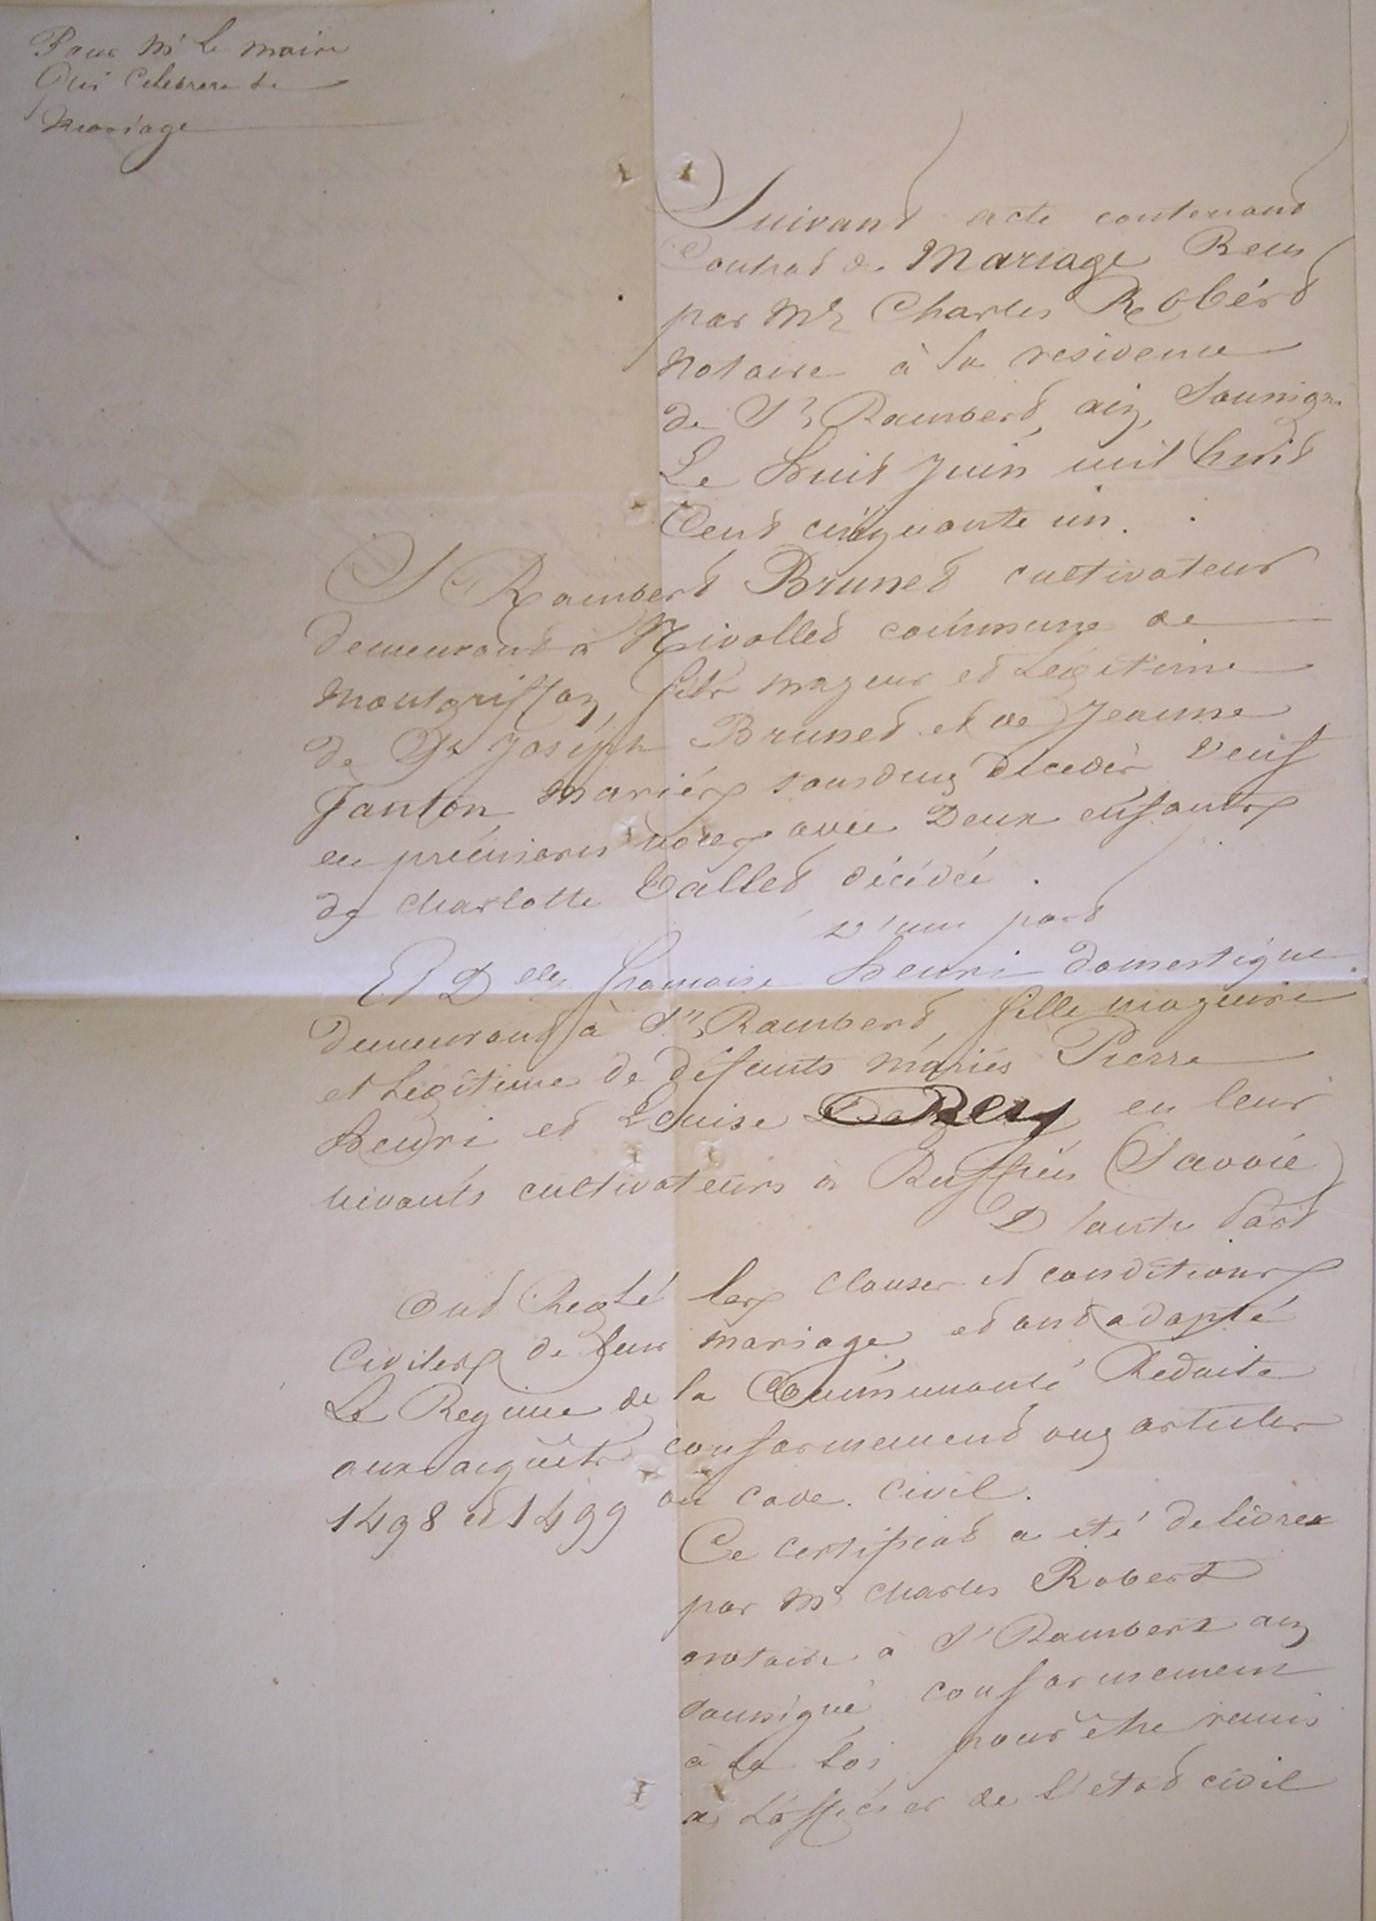 Pour Mr Le maire
Qui Celebrera le
Mariage
Suivant acte contenant
Contrat de Mariage Recu
par Me Charles Robért
Notaire à la residence
de St Rambert, ain, Soussigné
Le huit Juin mil huit
Cent cinquante un.
St Rambert Brunet cultivateur
demeurant à Nivollet commune de
Montgriffon, fils majeur et Légitime
de St Joséph Brunet et de Jeanne
Janton mariés tous deux décédés veuf
en prémieres noces avec Deux enfants
de Charlotte Tallet décédée.
D'une part
Et Delle françoise henri domestique
demeurant à St Rambert, fille majeure
et Légitime de défunts mariés Pierre
henri et Louise Rey en leur
vivants cultivateurs à Ruffieu (Savoie)
D'autre Part
Ont Reglé les clauses et conditions
Civiles de leur mariage, et ont adopté
Le Regime de la Communauté Reduite
aux acquêts conformement aux articles
1498 et 1499 du code civil.
Ce certificat a eté delivrer
par Me Charles Robert
notaire à St Rambert ain
soussigné conformement
à la loi pour être remis
a L'officier de l'état civil